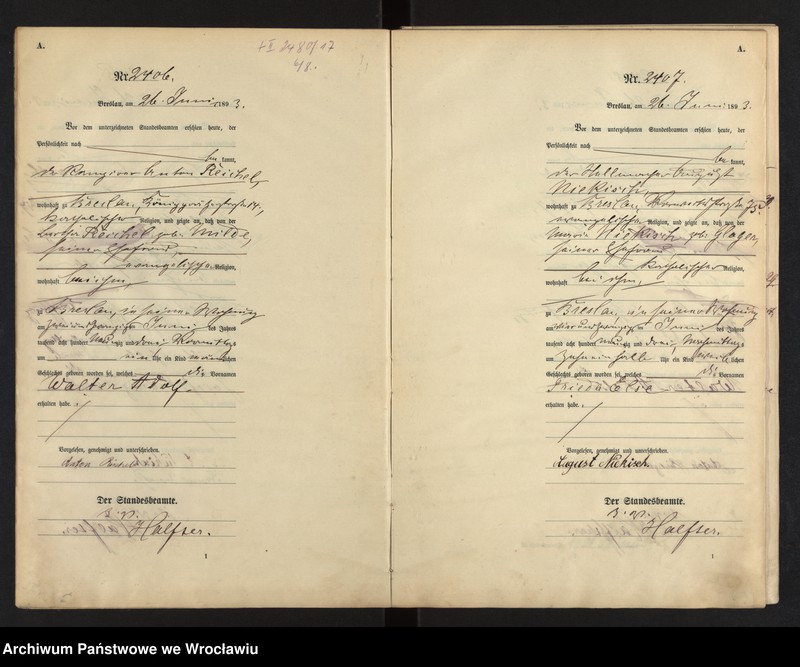 A.
+ I 2480/17
Nr. 2406.
Breslau, am 26. Juni 1893.
Vor dem unterzeichneten Standesbeamten erschien heute, der
Persönlichkeit nach
be kannt,
Anton Reichel,
wohnhaft zu Breslau,
katholischer Religion, und zeigte an, daß von der
Reichel geb. Milde,
seiner Ehefrau,
evangelischer Religion,
wohnhaft bei ihm,
zu Breslau, in seiner Wohnung
am zweiundzwanzigsten Juni des Jahres
tausend acht hundert neunzig und drei Vormittags
um ein Uhr ein Kind männlichen
Geschlechts geboren worden sei, welches die Vornamen
Walter Adolf
erhalten habe.
Vorgelesen, genehmigt und unterschrieben.
Anton Reichel
Der Standesbeamte.
Halfter.
1
A.
Nr. 2407.
Breslau, am 26. Juni 1893.
Vor dem unterzeichneten Standesbeamten erschien heute, der
Persönlichkeit nach
be kannt,
der Hallmacher August
Niekisch,
wohnhaft zu Breslau,
evangelischer Religion, und zeigte an, daß von der
Maria Niekisch geb.
seiner Ehefrau,
katholischer Religion,
wohnhaft bei ihm,
zu Breslau, in seiner Wohnung
am vierundzwanzigsten Juni des Jahres
tausend acht hundert neunzig und drei, Nachmittags
um zehneinhalb Uhr ein Kind weiblichen
Geschlechts geboren worden sei, welches die Vornamen
Frieda
erhalten habe.
Vorgelesen, genehmigt und unterschrieben.
August Niekisch.
Der Standesbeamte.
Halfter.
1
Archiwum Państwowe we Wrocławiu